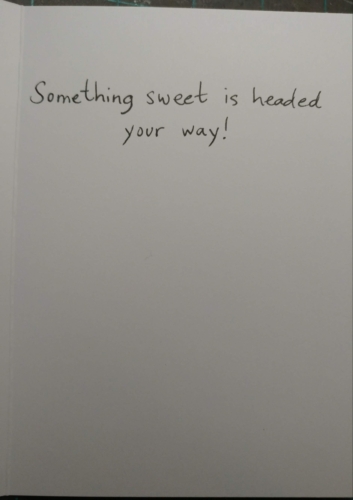 Something sweet is headed
your way!